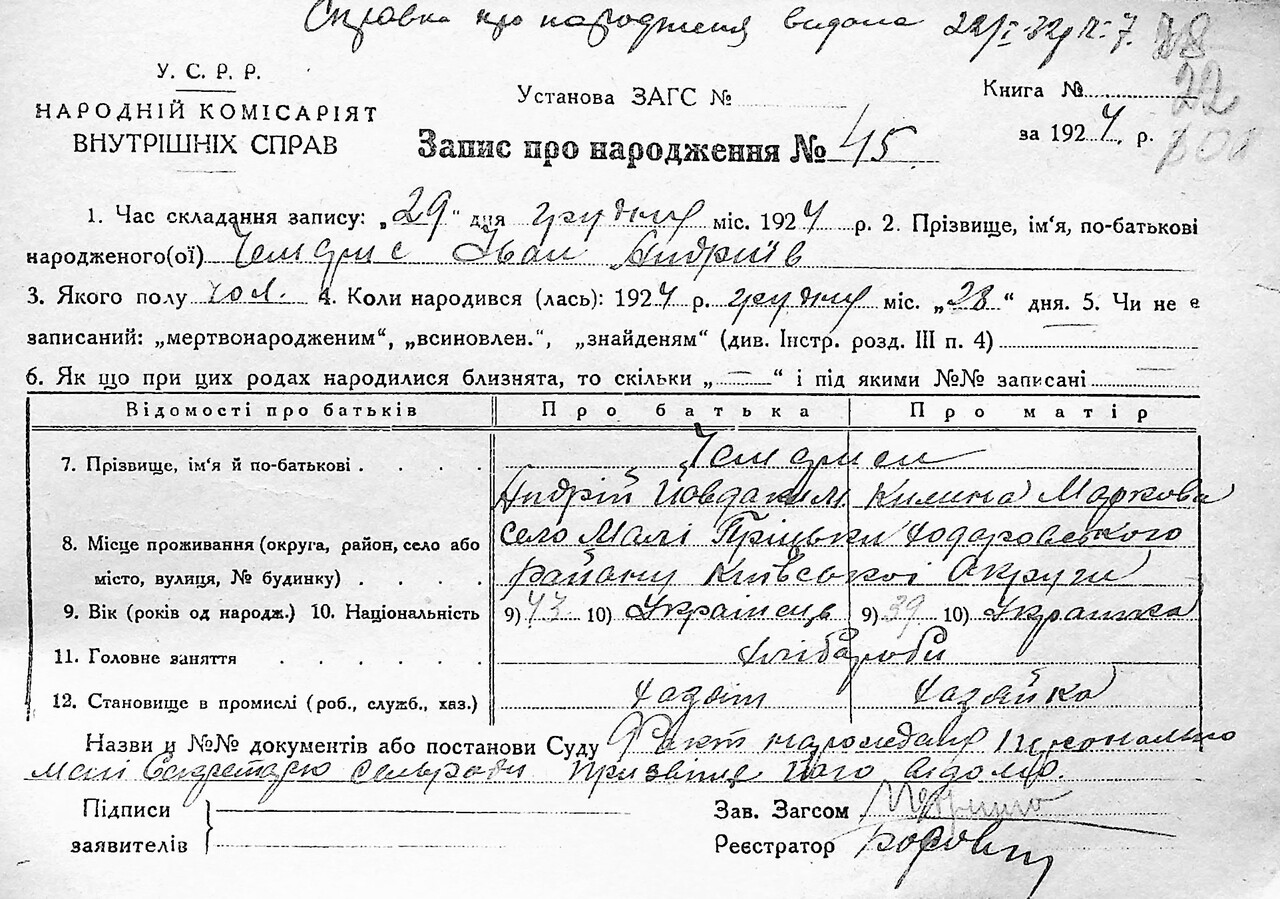 Справка про народження видана 22/I-32р. №7. 28
У. С. Р. Р.
НАРОДНІЙ КОМІСАРІЯТ
ВНУТРІШНІХ СПРАВ
Установа ЗАГС №
Книга № 22
Запис про народження № 45
за 1924 р.
1. Час складання запису: „29“ дня грудня міс. 1924 р. 2. Прізвище, ім'я, по-батькові
народженого(ої) Чемерис Іван Андріїв
3. Якого полу чол. 4. Коли народився (лась): 1924 р. грудня міс. „28“ дня. 5. Чи не є
записаний: „мертвонародженим“, „всиновлен.“, „знайденям“ (див. Інстр. розд. III п. 4)
6. Як що при цих родах народилися близнята, то скільки „—“ і під якими №№ записані —
Відомості про батьків Про батька Про матір
7. Прізвище, ім'я й по-батькові . . . . Чемериси
Андрій Йовдаким. Килина Маркова
8. Місце проживання (округа, район, село або село Малі Пріцьки Ходоровського
місто, вулиця, № будинку) . . . . району Київської Округи
9. Вік (років од народж.) 10. Національність 9) 43 10) Українець 9) 39 10) Українка
11. Головне заняття . . . . . . Хлібороби
12. Становище в промислі (роб., служб., хаз.) Хазяїн Хазяйка
Назви и №№ документів або постанови Суду Факт народження персонально
Секретарю сельради призвіще його відомо.
Підписи
заявителів
Зав. Загсом
Реєстратор